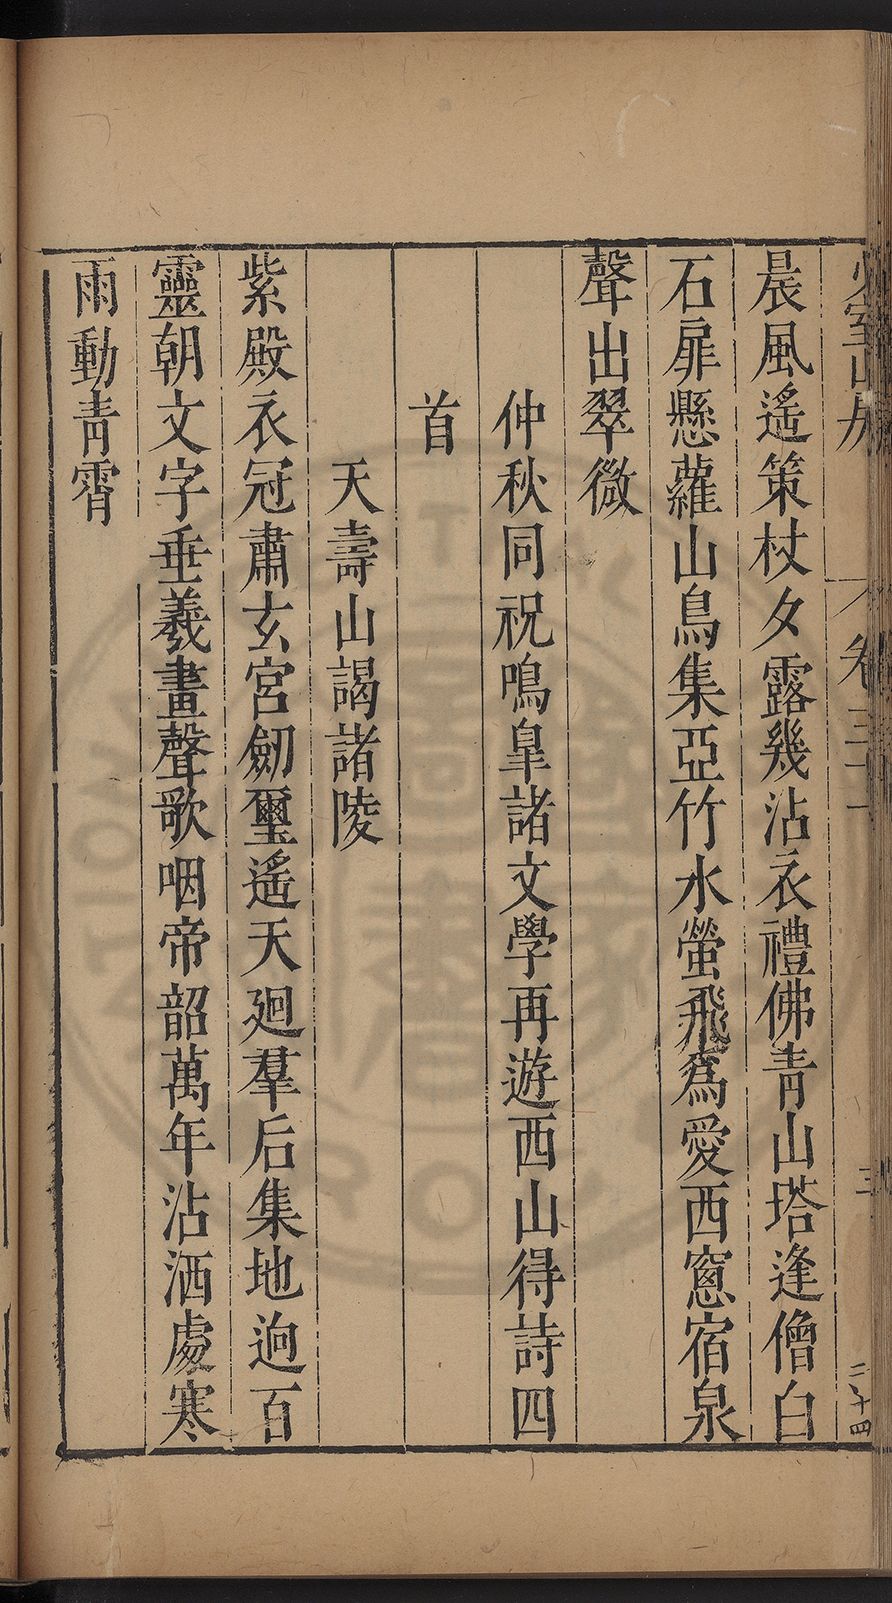 晨風遙策杖夕露幾沾衣禮佛青山塔逢僧白
石扉懸蘿山鳥集亞竹水螢飛爲愛西窻宿泉
聲出翠微
仲秋同祝鳴臯諸文學再遊西山得詩四
首
天壽山謁諸陵
紫殿衣冠肅玄宮劒璽遙天廻羣后集地逈百
靈朝文字垂羲畫聲歌咽帝韶萬年沾洒處寒
雨動青霄